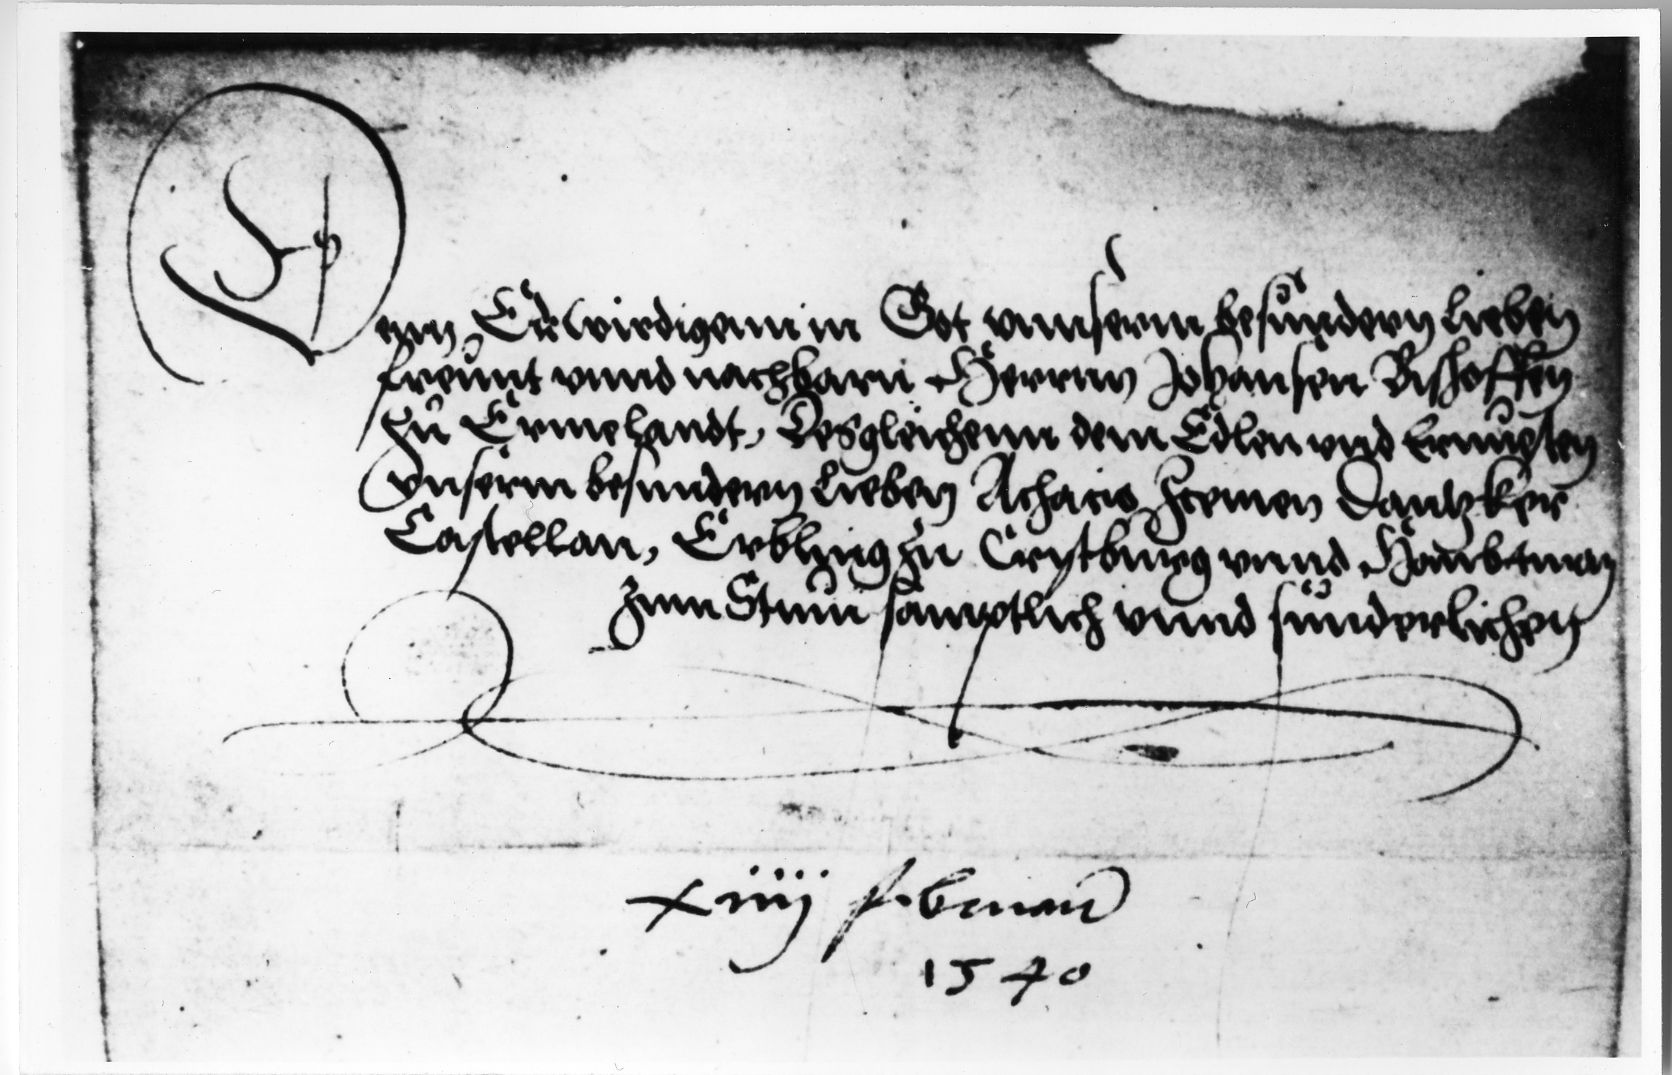 Denn Erwirdigenn in Got vnnserm besundern lieben
freunt vnnd nachbarn Herrnn Johansen Bischoffen
zu Ermelandt, Desgleichenn dem Edlen vnd Ernuesten
vnserm besundern lieben Achacio Zcemen Dantzker
Castellan, Erbling zu Cristburg vnnd Haubtman
zum Stum samptlich vnnd sunderlichen
xiiij Februarii
1540